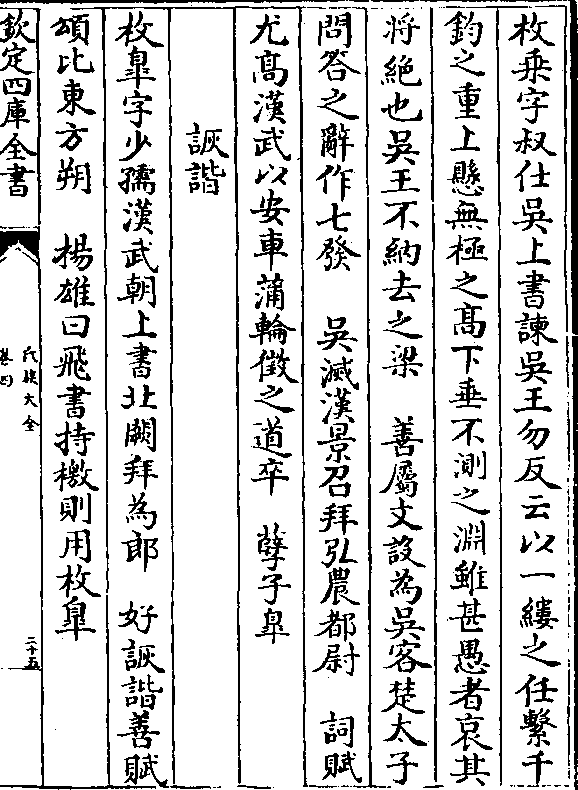 枚乗字叔仕吳上書諫吳王勿反云以一縷之任繫千
鈞之重上懸無極之髙下垂不測之淵雖甚愚者哀其
将絶也吳王不納去之梁　善屬文設為吳客楚太子
問答之辭作七發　吳滅漢景召拜弘農都尉　詞賦
尤髙漢武以安車蒲輪徵之道卒　孽子臯
詼諧
枚臯字少孺漢武朝上書北闕拜為郎　好詼諧善賦
頌比東方朔　揚雄曰飛書持檄則用枚臯
欽定四庫全書
氏族大全
卷四
二十五